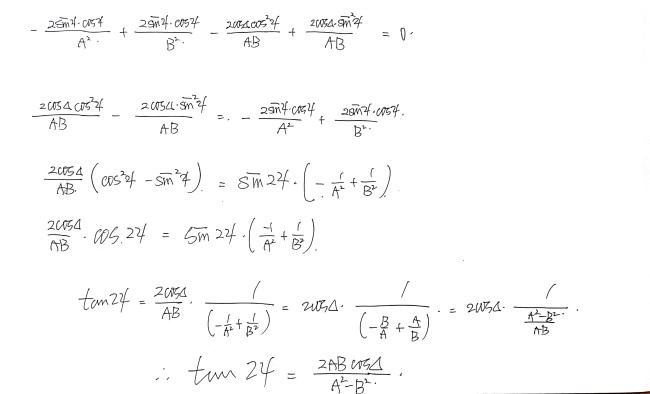 - 2sinψ·cosψ/A² + 2sinψ·cosψ/B² - 2cosΔcos²ψ/AB + 2cosΔ·sin²ψ/AB = 0.
2cosΔcos²ψ/AB - 2cosΔ·sin²ψ/AB =. - 2sinψ·cosψ/A² + 2sinψ·cosψ/B².
2cosΔ/AB. (cos²ψ - sin²ψ). = sin2ψ·(-1/A² + 1/B²)
2cosΔ/AB · cos.2ψ = sin2ψ·(-1/A² + 1/B²).
tan2ψ = 2cosΔ/AB · 1/(-1/A² + 1/B²) = 2cosΔ· 1/(-B/A + A/B) . = 2cosΔ· 1/((A²-B²)/AB) .
∴ tan2ψ = 2ABcosΔ/(A²-B²) .